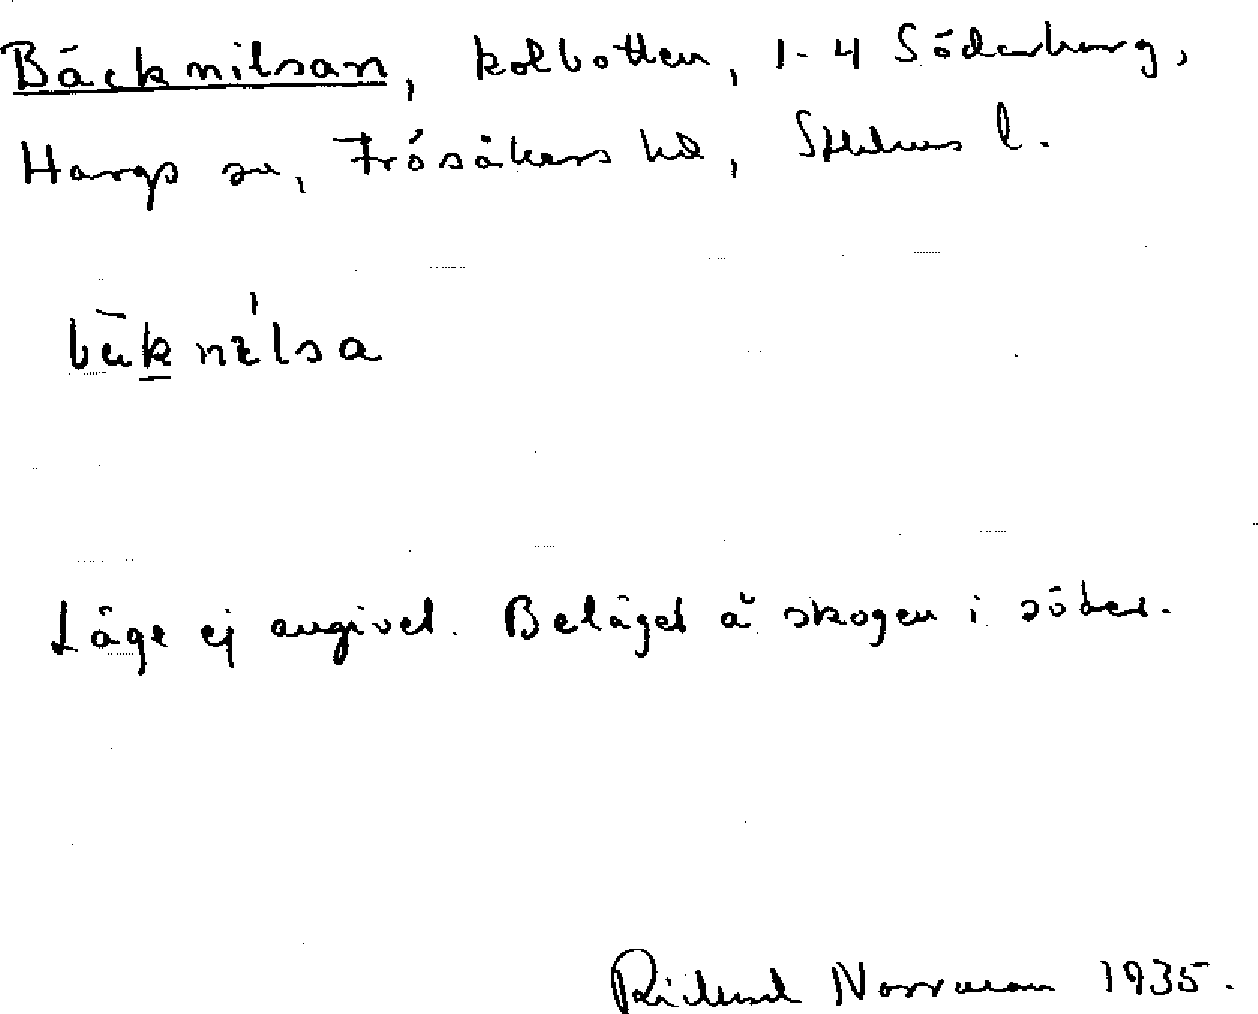 Bäcknilsan, kolbotten, 1-4 Söderburg,
Hargs sn, Frösåkers hd, Sthlms l.
bäknìlsa
Läge ej angivet. Beläget å skogen i söder.
Rickard Norrman 1935.